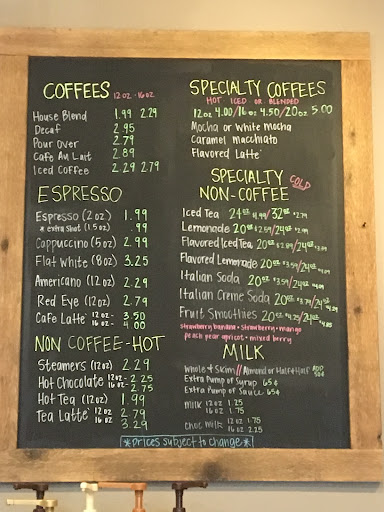 COFFEES 12oz - 16oz
House Blend 1.99 2.29
Decaf 2.95
Pour Over 2.79
Cafe Au Lait 2.89
Iced Coffee 2.29 2.79
ESPRESSO
Espresso (2oz) 1.99
* extra shot (1.5oz) .99
Cappuccino (5oz) 2.99
Flat White (8oz) 3.25
Americano (12oz) 2.29
Red Eye (12oz) 2.79
Cafe Latte 12oz - 3.50
16oz - 4.00
NON COFFEE-HOT
Steamers (12oz) 2.29
Hot Chocolate 12oz - 2.25
16oz - 2.75
Hot Tea (12oz) 1.99
Tea Latte 12oz 2.79
16oz 3.29
SPECIALTY COFFEES
HOT ICED OR BLENDED
12oz 4.00/16oz 4.50/20oz 5.00
Mocha or white mocha
Caramel macchiato
Flavored Latte
SPECIALTY COLD
NON-COFFEE
Iced Tea 24oz $1.99/32oz $2.79
Lemonade 20oz $2.59/24oz $2.99
Flavored Iced Tea 20oz $2.89/24oz
Flavored Lemonade 20oz $3.59/24oz
Italian Soda 20oz /24oz
Italian Creme Soda 20oz $3.79/24oz
Fruit Smoothies 20oz $4.25/24oz
strawberry banana • strawberry • mango
peach pear apricot • mixed berry
MILK
Whole + Skim // Almond or Half + Half ADD 50¢
Extra Pump of Syrup 65¢
Extra Pump of Sauce 65¢
milk 12oz 1.25
16oz 1.75
choc milk 12oz 1.75
16oz 2.25
*prices subject to change*